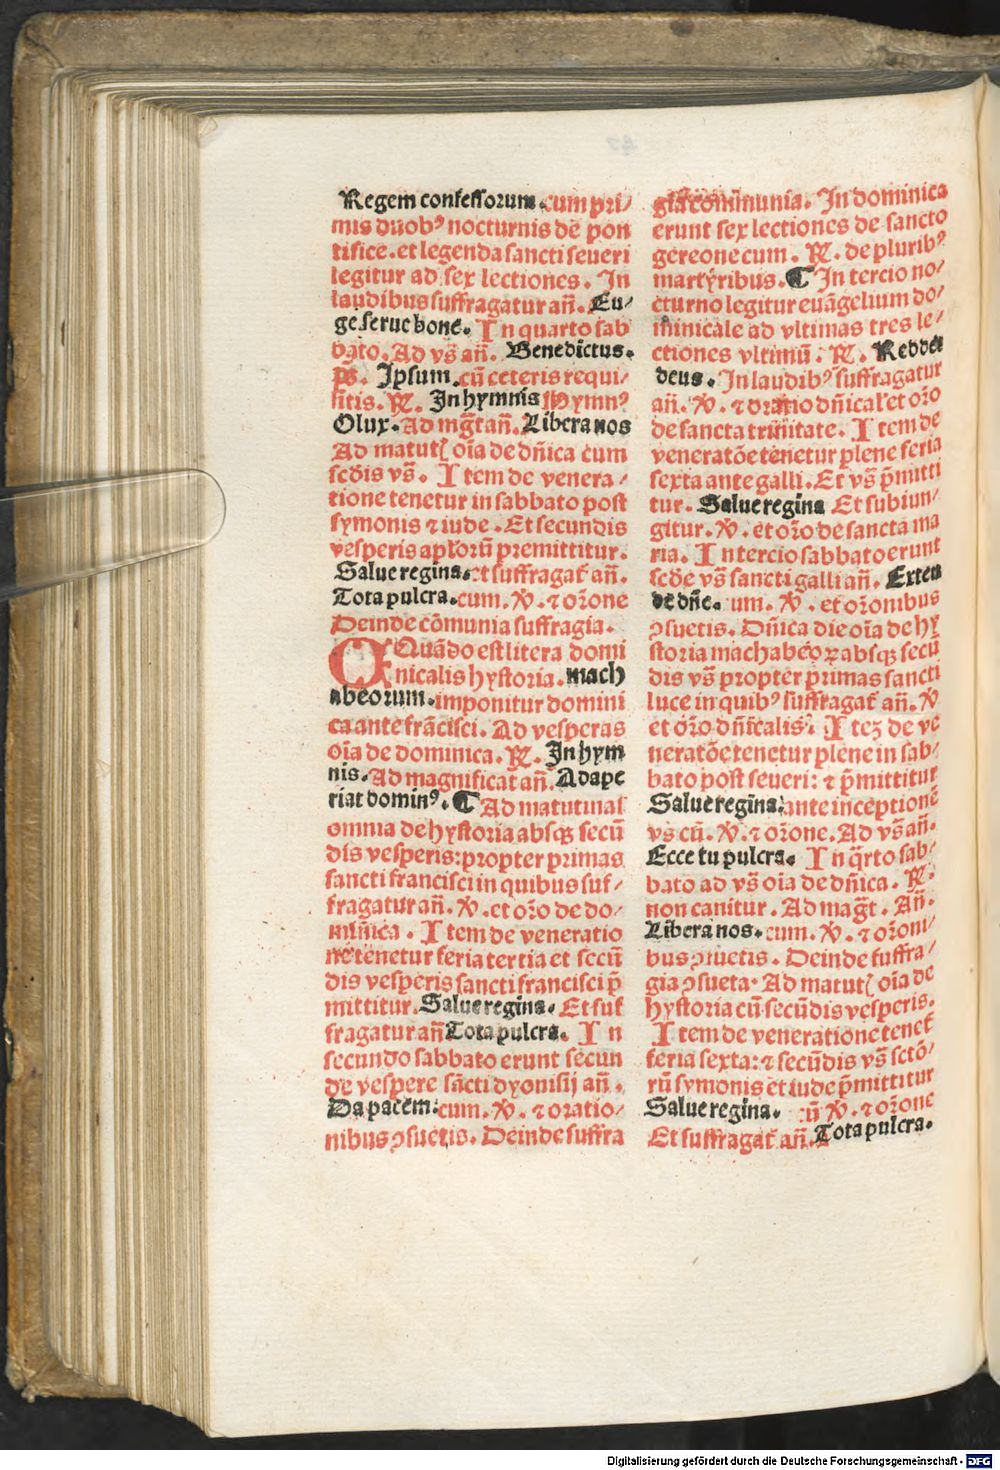 Regem confessorum. cum pri/
mis duobꝰ nocturnis de pon
tifice. et legenda sancti seueri
legitur ad sex lectiones. In
laudibus suffragatur an̄. Eu/
ge serue bone. In quarto sab
bato. Ad vs̄ an̄. Benedictus.
ps̄. Ipsum. cū ceteris requi/
sitis. ℞. In hymnis Hymnꝰ
O lux. Ad mḡt an̄. Libera nos
Ad matut oīa de dn̄ica cum
scd̄is vs̄. Item de venera/
tione tenetur in sabbato post
symonis ⁊ iude. Et secundis
vesperis apl'orū premittitur.
Salue regina. et suffragat̄ an̄.
Tota pulcra. cum. ℣. ⁊ orōne
Deinde cōmunia suffragia.
Quādo est litera domi
nicalis hystoria. mach
abeorum. imponitur domini
ca ante frācisci. Ad vesperas
oīa de dominica. ℞. In hym
nis. Ad magnificat an̄. Adape
riat dominꝰ. ¶ Ad matutinas
omnia de hystoria absqꝫ secū
dis vesperis: propter primas
sancti francisci in quibus suf/
fragatur an̄. ℣. et orō de do/
minica. Item de veneratio
ne tenetur feria tertia et secū
dis vesperis sancti francisci p̄
mittitur. Salue regina. Et suf
fragatur an̄ Tota pulcra. In
secundo sabbato erunt secun
de vespere sācti dyonisij an̄.
Da pacem. cum. ℣. ⁊ oratio/
nibus ꝯsuetis. Deinde suffra
gia communia. In dominica
erunt sex lectiones de sancto
gereone cum. ℞. de pluribꝰ
martyribus. ¶ In tercio no/
cturno legitur euāgelium do/
minicale ad vltimas tres le/
ctiones vltimū. ℞. Redde
deus. In laudibꝰ suffragatur
an̄. ℣. ⁊ oratio dn̄ical' et orō
de sancta trinitate. Item de
veneratōe tenetur plene feria
sexta ante galli. Et vs̄ p̄mitti
tur. Salue regina Et subiun/
gitur. ℣. et orō de sancta ma
ria. In tercio sabbato erunt
scd̄e vs̄ sancti galli an̄. Exten
de dn̄e. um. ℣. et orōnibus
ꝯsuetis. Dn̄ica die oīa de hy
storia machabeoꝝ absqꝫ secū
dis vs̄ propter primas sancti
luce in quibꝰ suffragat̄ an̄. ℣
et orō dn̄icalis. Iteꝫ de ve
neratōe tenetur plene in sab/
bato post seueri: ⁊ p̄mittitur
Salue regina. ante inceptionē
vs̄ cū. ℣. ⁊ orōne. Ad vs̄ an̄.
Ecce tu pulcra. In q̄rto sab/
bato ad vs̄ oīa de dn̄ica. ℞.
non canitur. Ad maḡt. An̄.
Libera nos. cum. ℣. ⁊ orōni/
bus ꝯsuetis. Deinde suffra/
gia ꝯsueta. Ad matut oīa de
hystoria cū secūdis vesperis.
Item de veneratione tenet̄
feria sexta: ⁊ secūdis vs̄ sctō/
rū symonis et iude p̄mittitur
Salue regina. cū ℣. ⁊ orōne
Et suffragat̄ an̄. Tota pulcra.
Digitalisierung gefördert durch die Deutsche Forschungsgemeinschaft - DFG